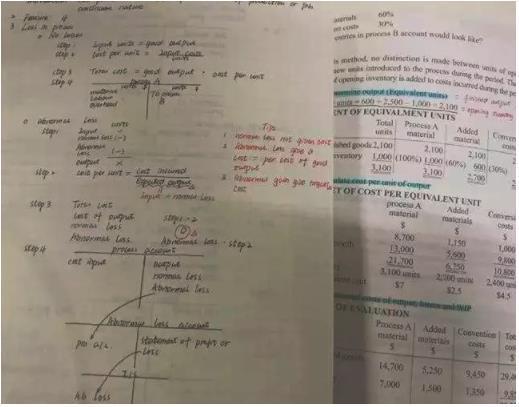 continuous nature
> Feature 4
3 Loss in process
o No losses
step 1 Input units = good output
step 2 cost per unit = Input costs
units
step 3 Total cost = good output × cost per unit
step 4 process A
units $ units $
material
Labour
overhead
To process
B
o Abnormal Loss
units
step 1 Input
normal loss (-)
Abnormal
loss (-)
output X
step 2 cost per unit = cost incurred
Expected output
Input - normal loss
step 3 Total cost
cost of output
normal loss
Abnormal Loss
step 1 - 2
Abnormal loss - step 2
step 4 process account
cost input
output
normal loss
Abnormal loss
Abnormal loss account
pro a/c
statement of profit or
loss
Ab loss
Tips
1 normal loss not given cost
2 Abnormal loss give a
cost = per cost of good
output
3 Abnormal gain give negative
cost
materials 60%
on costs 30%
entries in process B account would look like?
is method, no distinction is made between units of
new units introduced to the process during the period. The
f opening inventory is added to costs incurred during the
output (Equivalent units)
units = 600 + 2,500 - 1,000 = 2,100
ENT OF EQUIVALENT UNITS
Total Process A Added Conver
units material materials costs
ished goods 2,100 2,100 2,100
ventory 1,000 (100%) 1,000 (60%) 600 (30%)
3,100 3,100 2,700
cost per unit of output
T OF COST PER EQUIVALENT UNIT
process A Added Conversi
material materials costs
$ $ $
8,700 1,150
13,000 5,600 9,800
21,700 6,750 10,800
3,100 units 2,700 units 2,400 uni
$7 $2.5 $4.5
costs of output, losses and WIP
OF EVALUATION
Process A Added Convention Tot
material materials costs cos
$ $ $ $
14,700 5,250 9,450 29,4
7,000 1,500 1,350 9,85